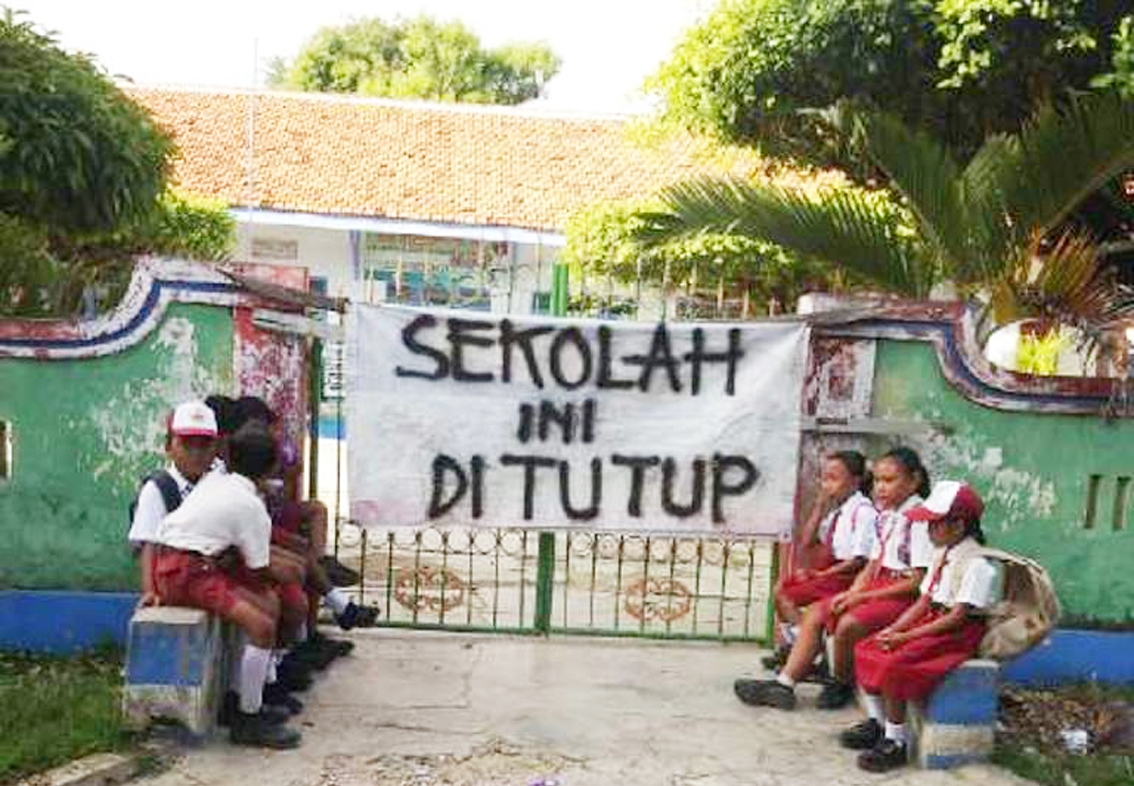 SEKOLAH
INI
DI TUTUP